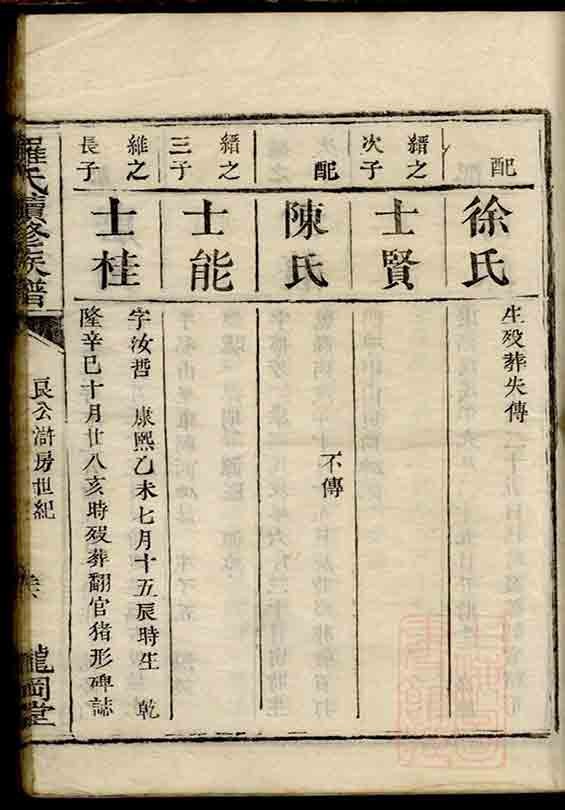 配
徐氏
生殁葬失傳
縉之
次子
士賢
配
陳氏
不傳
縉之
三子
士能
維之
長子
士桂
字汝哲 康熙乙未七月十五辰時生 乾
隆辛巳十月廿八亥時殁葬翻官猪形碑誌
羅氏續修族譜
良公滸房世紀
龍岡堂